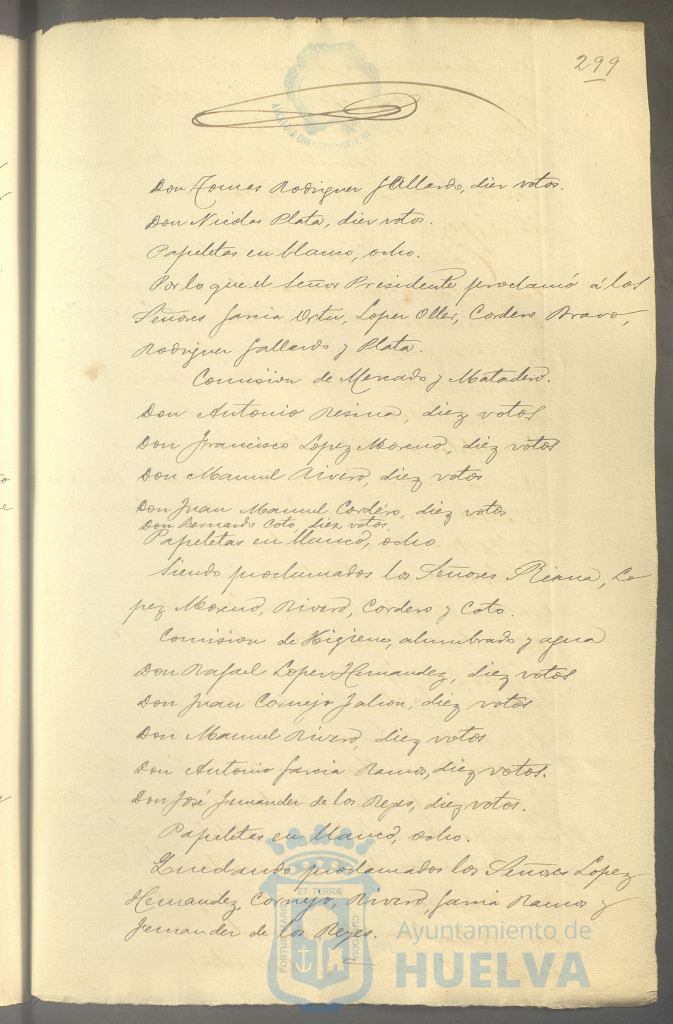 299
Don Tomas Rodriguez Gallardo, diez votos.
Don Nicolas Plata, diez votos.
Papeletas en blanco, ocho.
Por lo que el Señor Presidente proclamó á los
Señores Garcia Ortiz, Lopez Oller, Cordero Bravo,
Rodriguez Gallardo y Plata.
Comision de Mercado y Matadero.
Don Antonio Resina, diez votos
Don Francisco Lopez Moreno, diez votos
Don Manuel Rivero, diez votos
Don Juan Manuel Cordero, diez votos
Don Bernardo Coto, diez votos.
Papeletas en blanco, ocho.
Siendo proclamados los Señores Lo
pez Moreno, Rivero, Cordero y Coto.
Comision de Higiene, alumbrado y agua
Don Rafael Lopez Hernandez, diez votos
Don Juan Cornejo diez votos
Don Manuel Rivero, diez votos
Don Antonio Garcia Ramos, diez votos.
Don José Fernandez de los Reyes, diez votos.
Papeletas en blanco, ocho.
Quedando proclamados los Señores Lopez
Hernandez, Cornejo, Rivero, Garcia Ramos y
Fernandez de los Reyes.
Ayuntamiento de
HUELVA